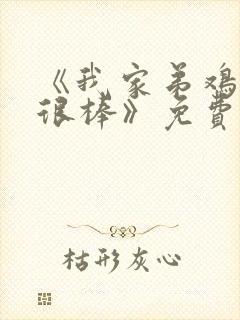 《我家弟鸡
很棒》免費
枯形灰心